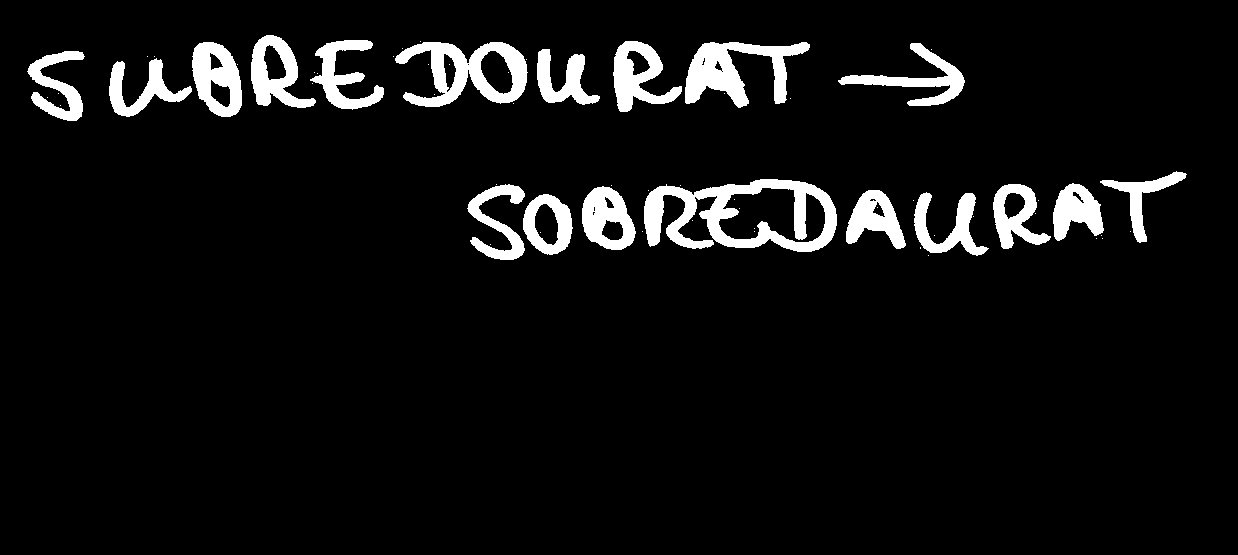 SUBREDOURAT →
SOBREDAURAT